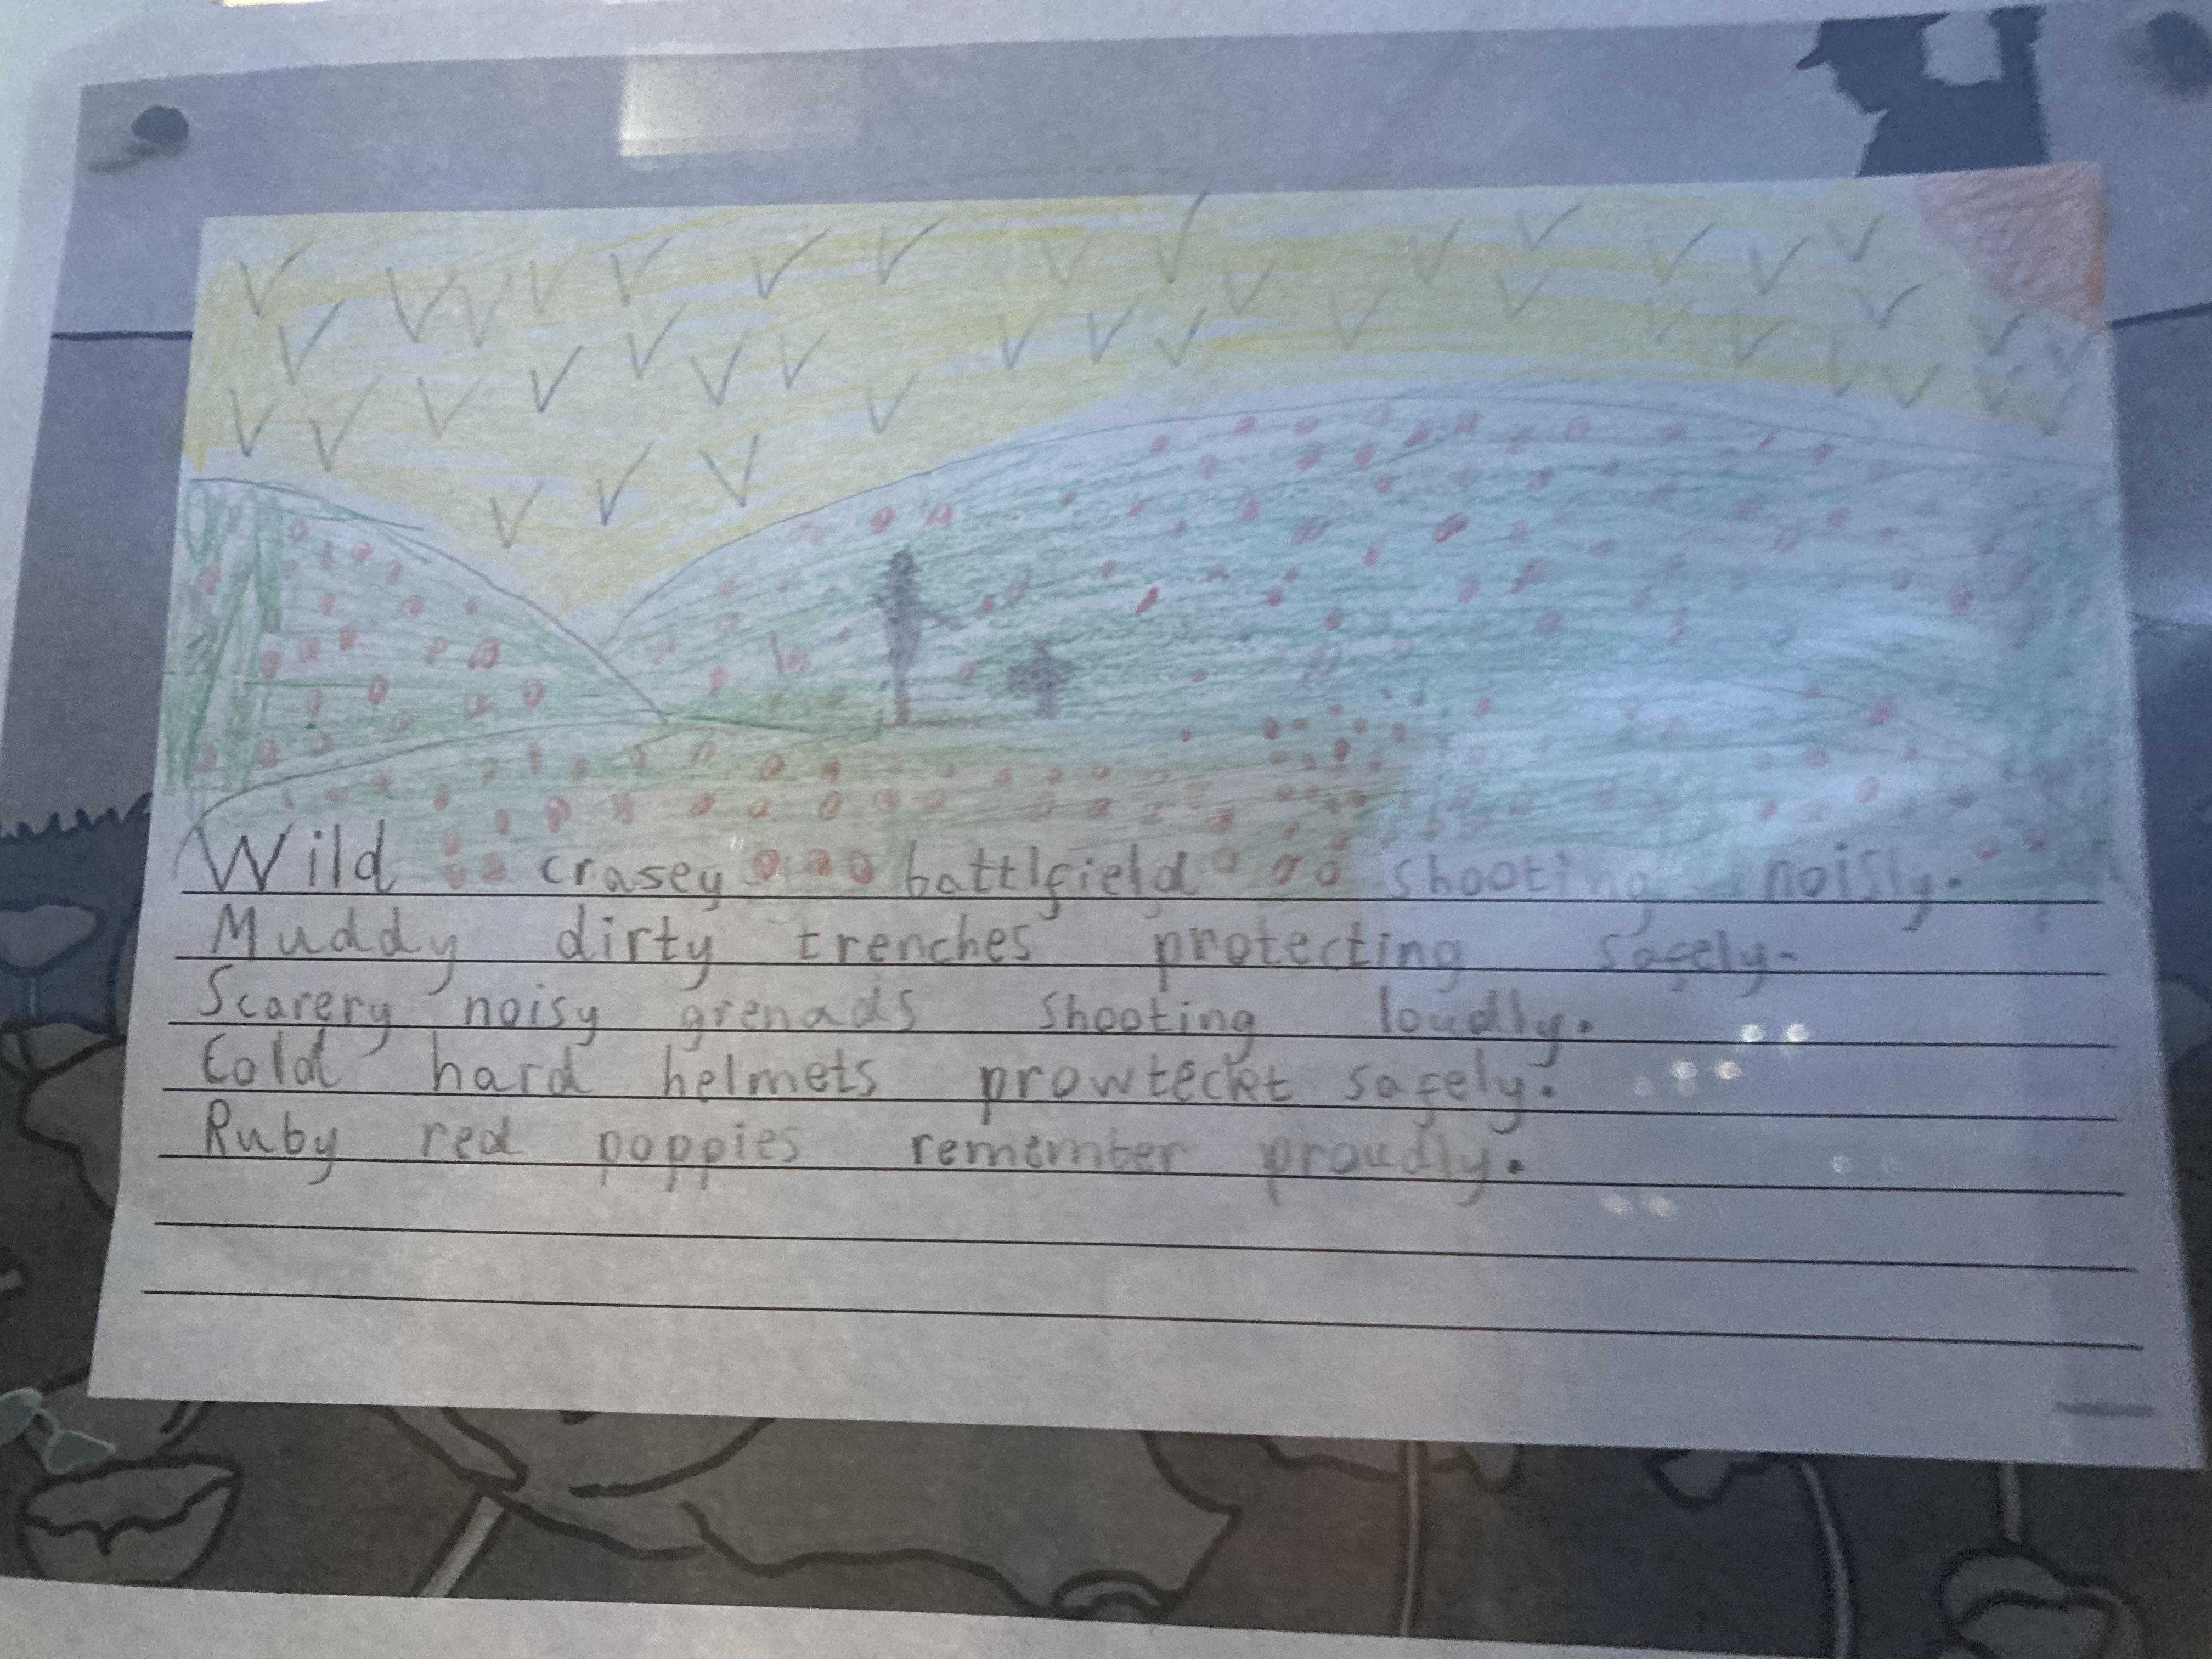 Wild crasey battlfield shooting noisly.
Muddy dirty trenches protecting safely.
Scarery noisy grenads shooting loudly.
Cold hard helmets prowteckt safely.
Ruby red poppies remember proudly.